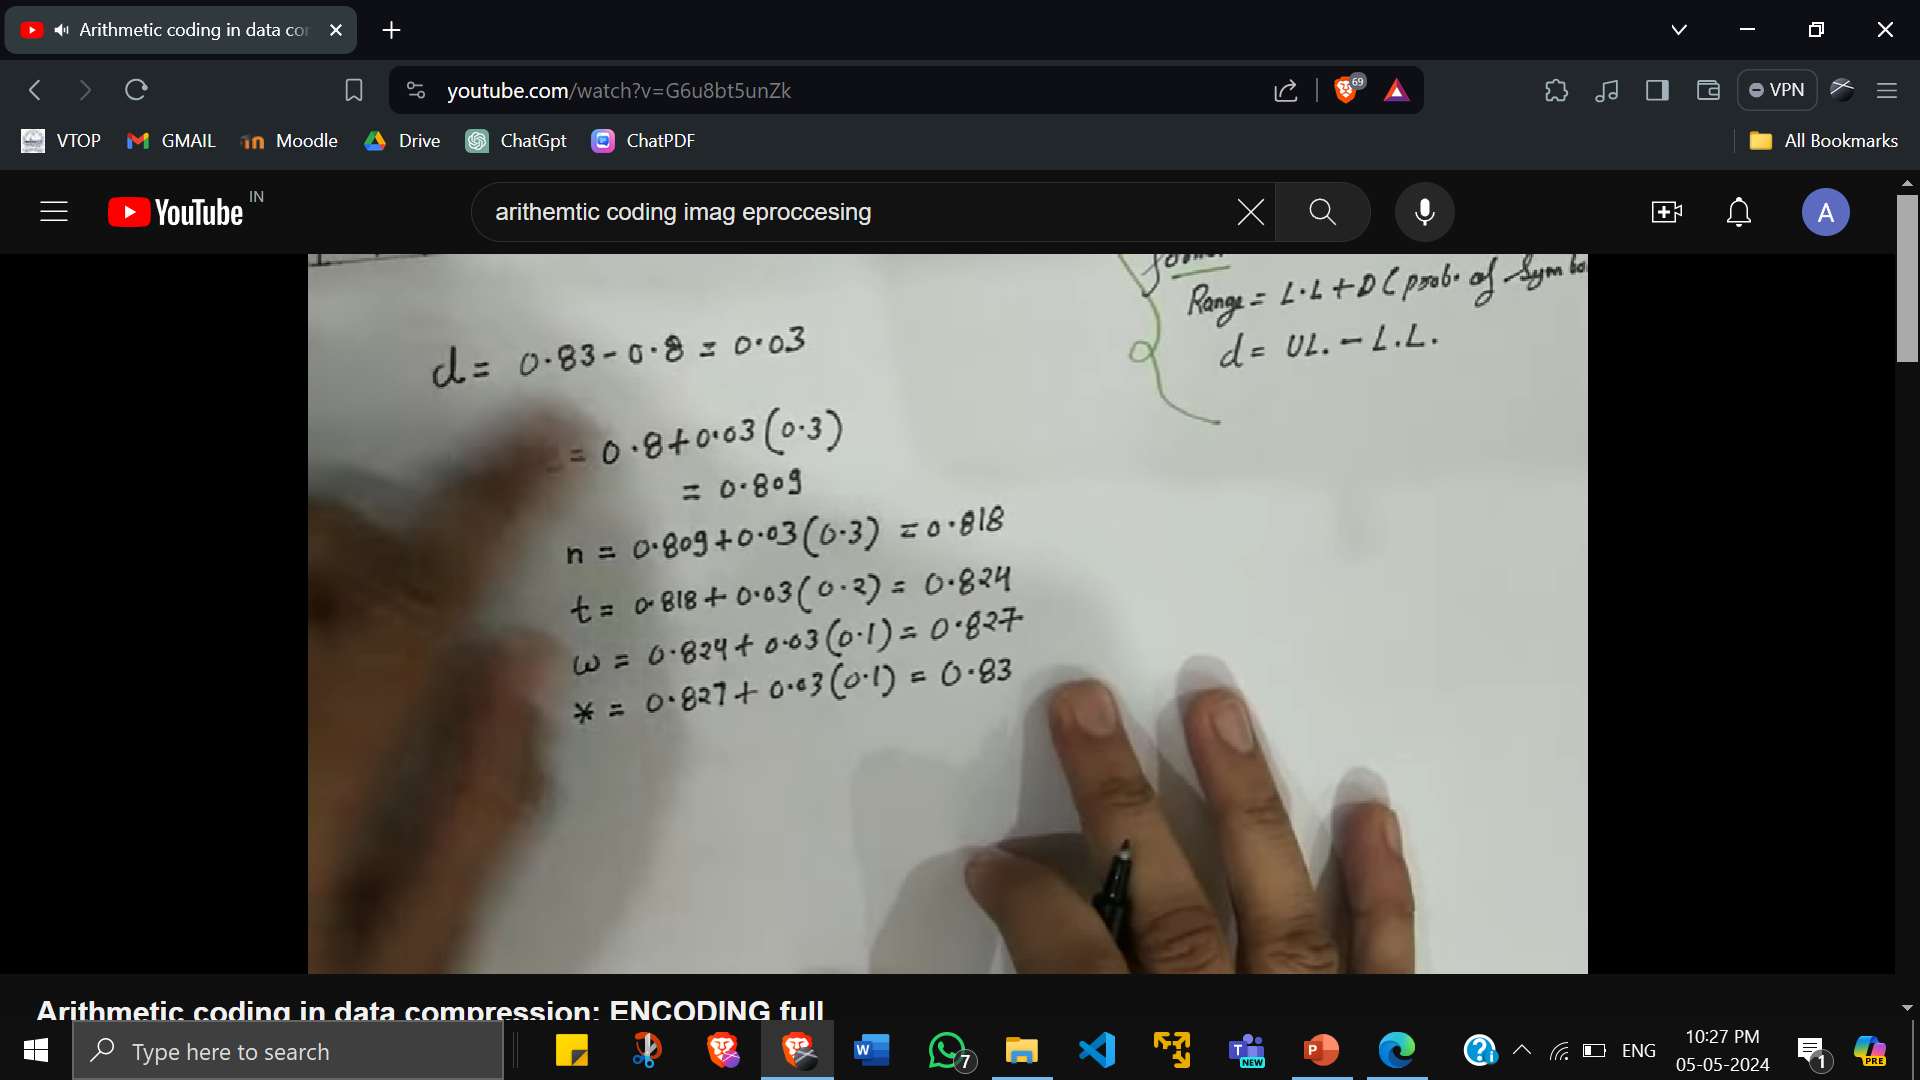 Arithmetic coding in data cor
youtube.com/watch?v=G6u8bt5unZk
69
VPN
VTOP
GMAIL
Moodle
Drive
ChatGpt
ChatPDF
All Bookmarks
YouTube IN
arithemtic coding imag eproccesing
A
Range = L.L + D (prob. of Symbo
d = UL. - L.L.
d = 0.83 - 0.8 = 0.03
= 0.8 + 0.03 (0.3)
= 0.809
n = 0.809 + 0.03 (0.3) = 0.818
t = 0.818 + 0.03 (0.2) = 0.824
w = 0.824 + 0.03 (0.1) = 0.827
* = 0.827 + 0.03 (0.1) = 0.83
Arithmetic coding in data compression: ENCODING full
Type here to search
W
7
T
NEW
P
ENG
10:27 PM
05-05-2024
1
PRE